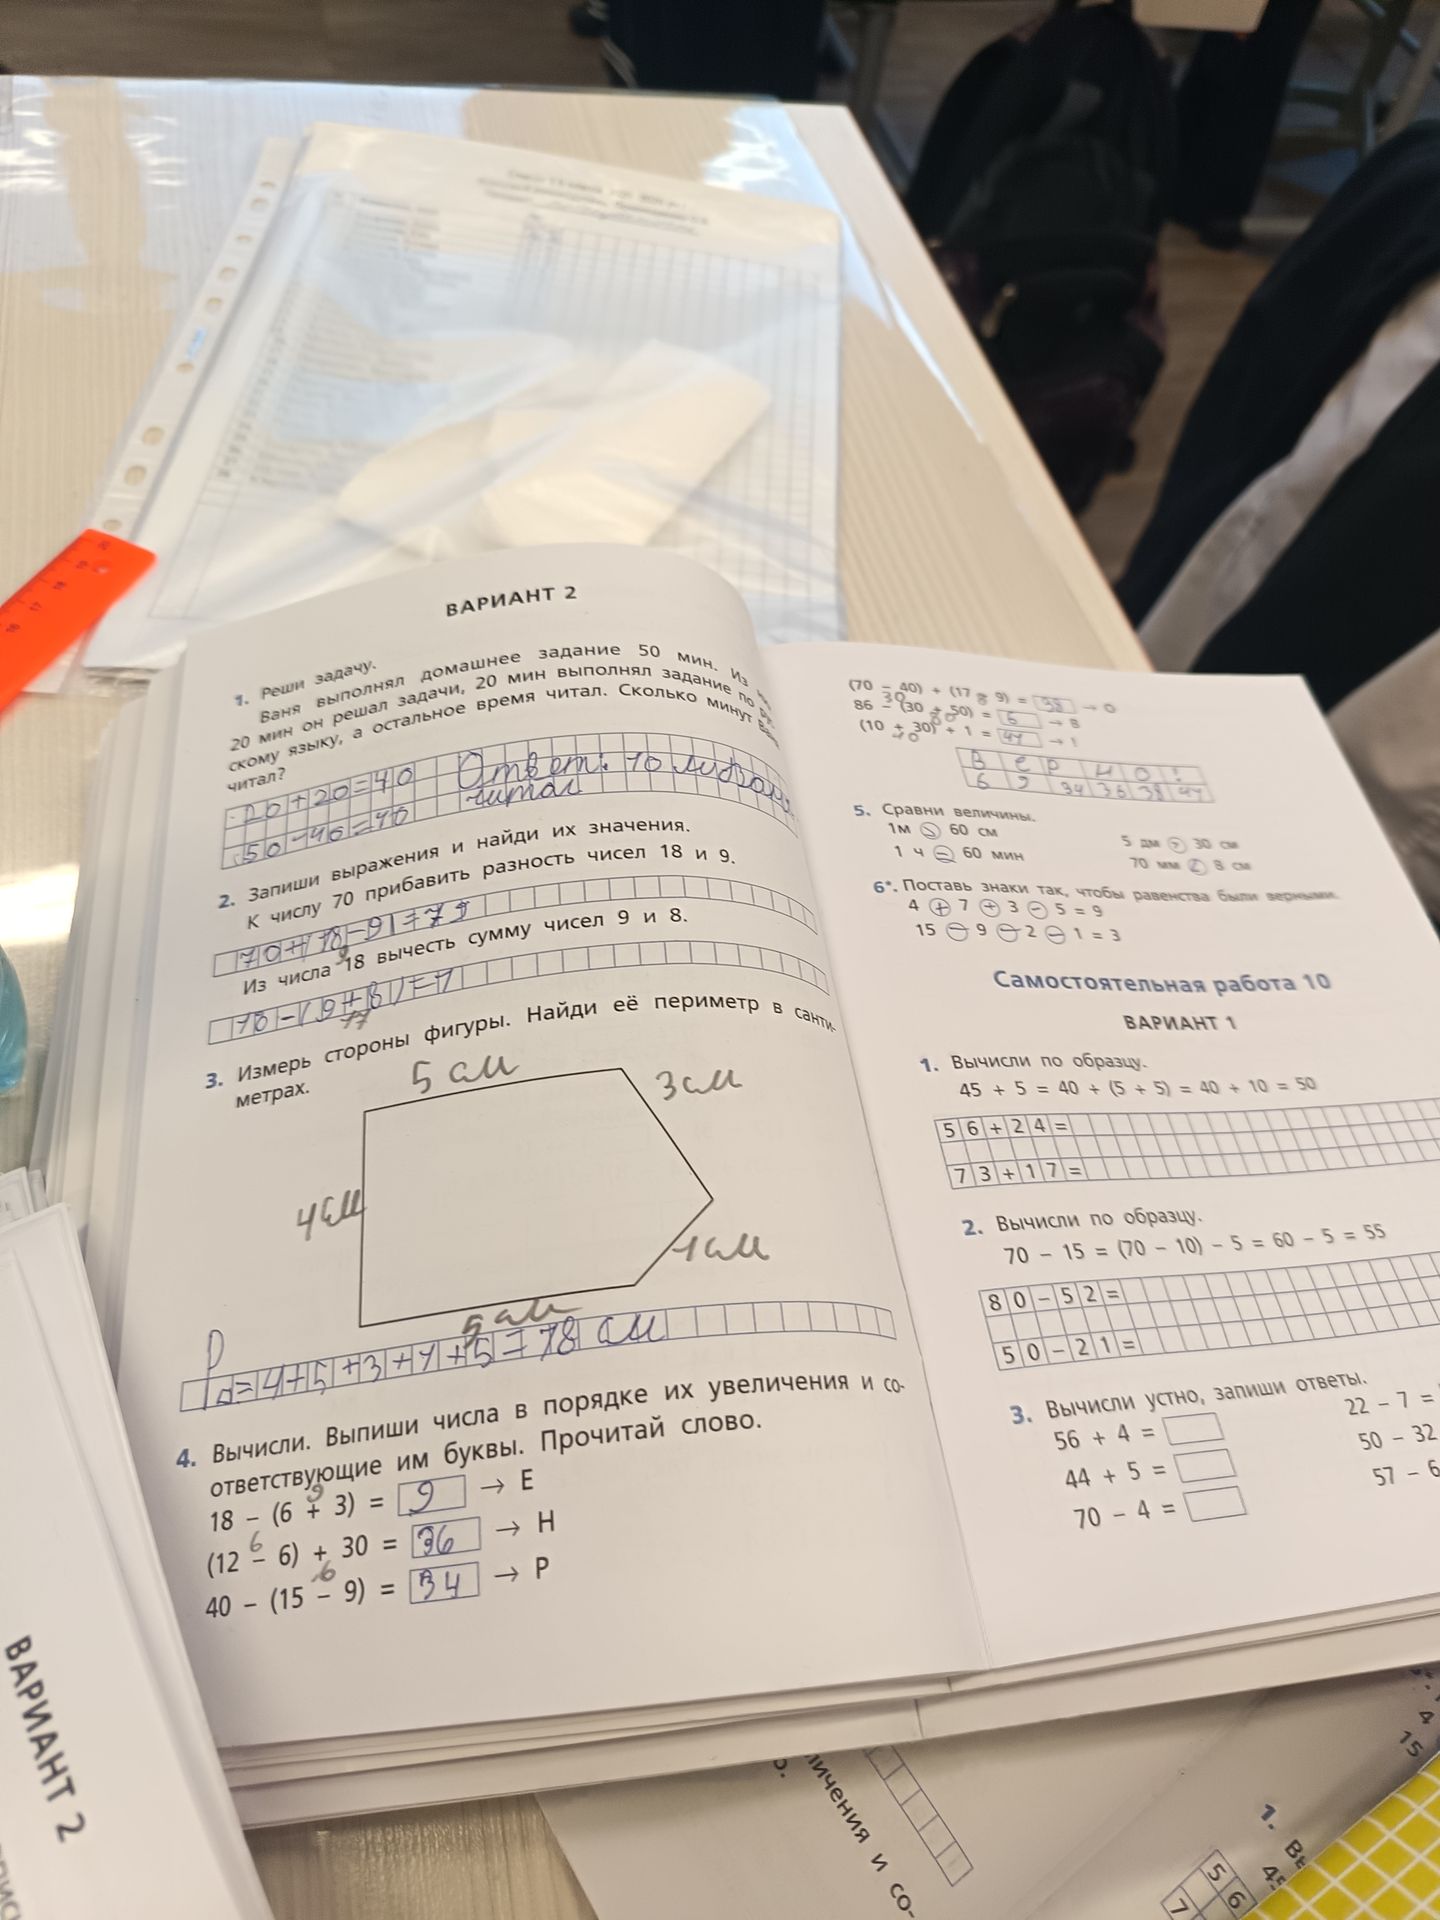 ВАРИАНТ 2
1. Реши задачу.
Ваня выполнял домашнее задание 50 мин. Из
20 мин он решал задачи, 20 мин выполнял задание по
скому языку, а остальное время читал. Сколько минут Ваня
читал?
20+20=40 Ответ: 10
50-40=10 читал
2. Запиши выражения и найди их значения.
К числу 70 прибавить разность чисел 18 и 9.
70+(18-9)=79
9
Из числа 18 вычесть сумму чисел 9 и 8.
18-(9+8)=1
17
3. Измерь стороны фигуры. Найди её периметр в санти-
метрах.
5 см
3 см
4 см
1 см
5 см
P
=4+5+3+1+5=18 см
4. Вычисли. Выпиши числа в порядке их увеличения и со-
ответствующие им буквы. Прочитай слово.
9
18 – (6 + 3) = 9 → Е
6
(12 – 6) + 30 = 36 → Н
6
40 – (15 – 9) = 34 → Р
(70 – 40) + (17 – 9) = 38 → О
30 8
86 – (30 + 50) = 6 → В
(10 + 30) + 1 = 41 → !
40
В Е Р Н О !
6 9 34 36 38 41
5. Сравни величины.
1м > 60 см
5 дм > 30 см
1 ч = 60 мин
70 мм < 8 см
6*. Поставь знаки так, чтобы равенства были верными.
4 + 7 + 3 – 5 = 9
15 – 9 – 2 – 1 = 3
Самостоятельная работа 10
ВАРИАНТ 1
1. Вычисли по образцу.
45 + 5 = 40 + (5 + 5) = 40 + 10 = 50
56+24=
73+17=
2. Вычисли по образцу.
70 – 15 = (70 – 10) – 5 = 60 – 5 = 55
80–52=
50–21=
3. Вычисли устно, запиши ответы.
56 + 4 =
22 – 7 =
44 + 5 =
50 – 32
70 – 4 =
57 – 6
ВАРИАНТ 2
личения и со-
1. Вы
45
56
7
4
15
16 17 18 19 20